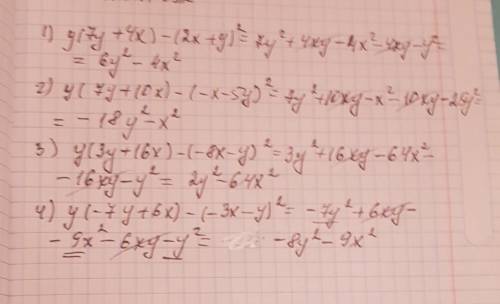 1) y(7y+4x)-(2x+y)²=7y²+4xy-4x²-4xy-y²=
=6y²-4x²
2) y(7y+10x)-(-x-5y)²=7y²+10xy-x²-10xy-25y²=
=-18y²-x²
3) y(3y+16x)-(-8x-y)²=3y²+16xy-64x²-
-16xy-y²=2y²-64x²
4) y(-7y+6x)-(-3x-y)²=-7y²+6xy-
-9x²-6xy-y²= -8y²-9x²